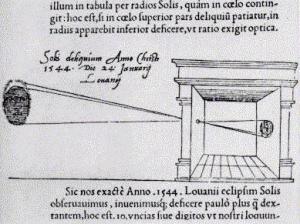 illum in tabula per radios Solis, quàm in cœlo contin-
git: hoc est, si in cœlo superior pars deliquiũ patiatur, in
radiis apparebit inferior deficere, vt ratio exigit optica.
Solis deliquium Anno Christi
1544. Die 24 Januarij
Louanij
Sic nos exactè Anno .1544. Louanii eclipsim Solis
obseruauimus, inuenimusq; deficere paulò plus q̃ dex-
tantem, hoc est .10. vncias siue digitos vt nostri loquun-